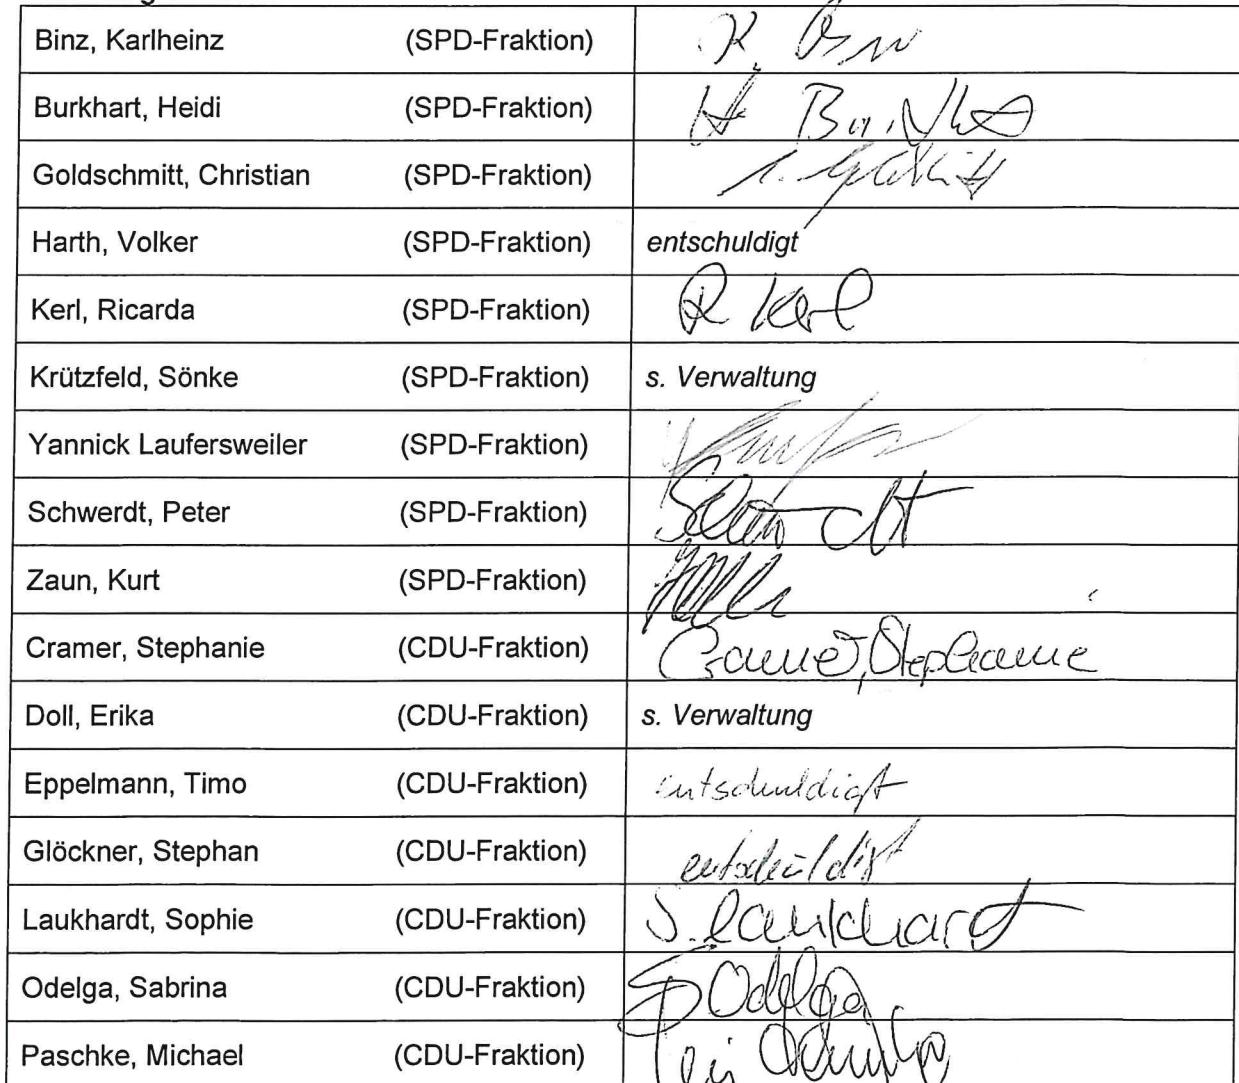 Binz, Karlheinz (SPD-Fraktion)
Burkhart, Heidi (SPD-Fraktion) H
Goldschmitt, Christian (SPD-Fraktion)
Harth, Volker (SPD-Fraktion) entschuldigt
Kerl, Ricarda (SPD-Fraktion) R Kerl
Krützfeld, Sönke (SPD-Fraktion) s. Verwaltung
Yannick Laufersweiler (SPD-Fraktion)
Schwerdt, Peter (SPD-Fraktion)
Zaun, Kurt (SPD-Fraktion)
Cramer, Stephanie (CDU-Fraktion) Cramer, Stephanie
Doll, Erika (CDU-Fraktion) s. Verwaltung
Eppelmann, Timo (CDU-Fraktion) entschuldigt
Glöckner, Stephan (CDU-Fraktion) entschuldigt
Laukhardt, Sophie (CDU-Fraktion) S. Laukhardt
Odelga, Sabrina (CDU-Fraktion) S Odelga
Paschke, Michael (CDU-Fraktion)